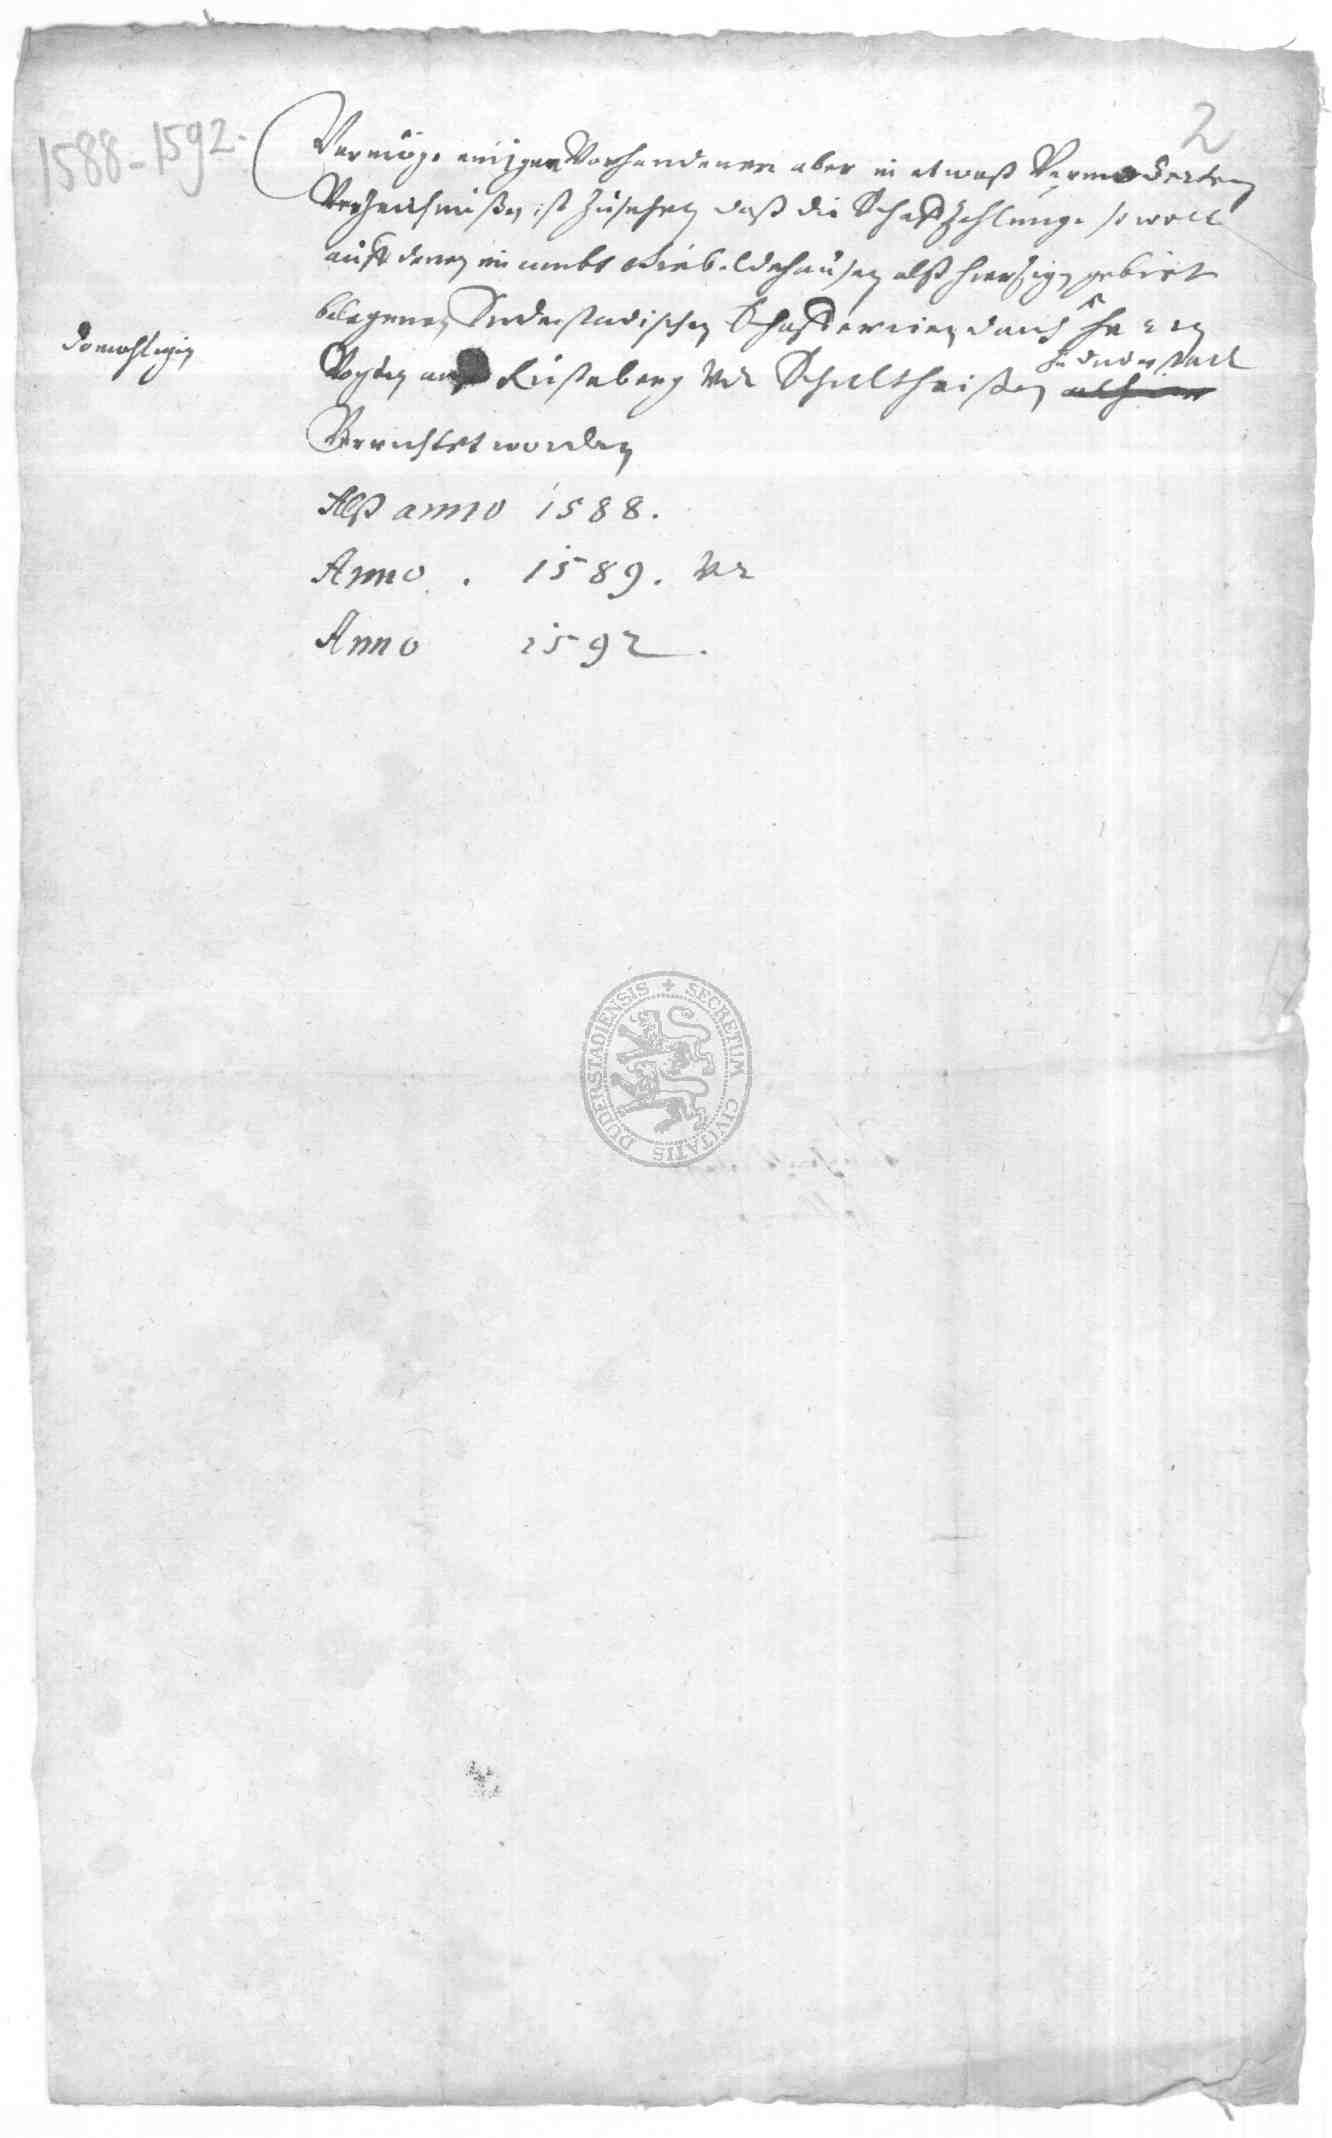 2
1588-1592.
Vermöge einiger Vorhandenen aber in etwaß Vermoderten
Verzeichnißen ist zusehen daß die Schaffzehlunge so woll
auff denen im ambt Giebeldehausen alß hiesigen gebiet
belegenen Duderstadischen Schaffereien durch H
domahligen
Vogten auf Rusteberg Vndt Schultheißen zu Duderstadt
Verrichtet worden
Alß anno 1588.
Anno. 1589. Vndt
Anno 1592.
SECRETUM CIVITATIS DUDERSTADIENSIS